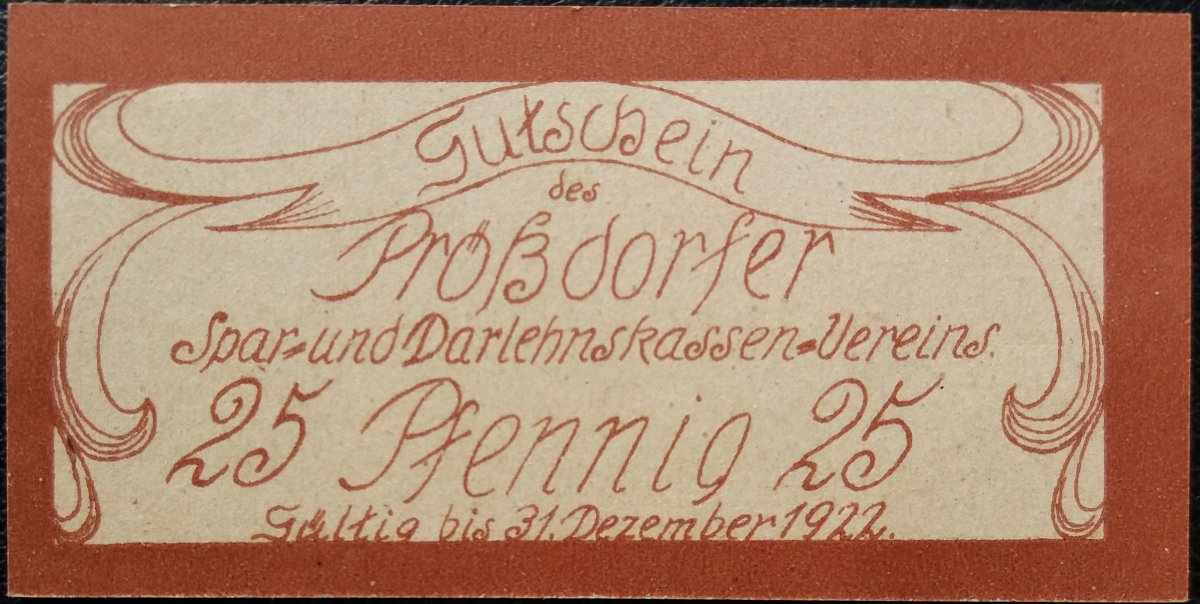 Gutschein
des
Prößdorfer
Spar-und Darlehnskassen-Vereins.
25 Pfennig 25
Gültig bis 31. Dezember 1922.